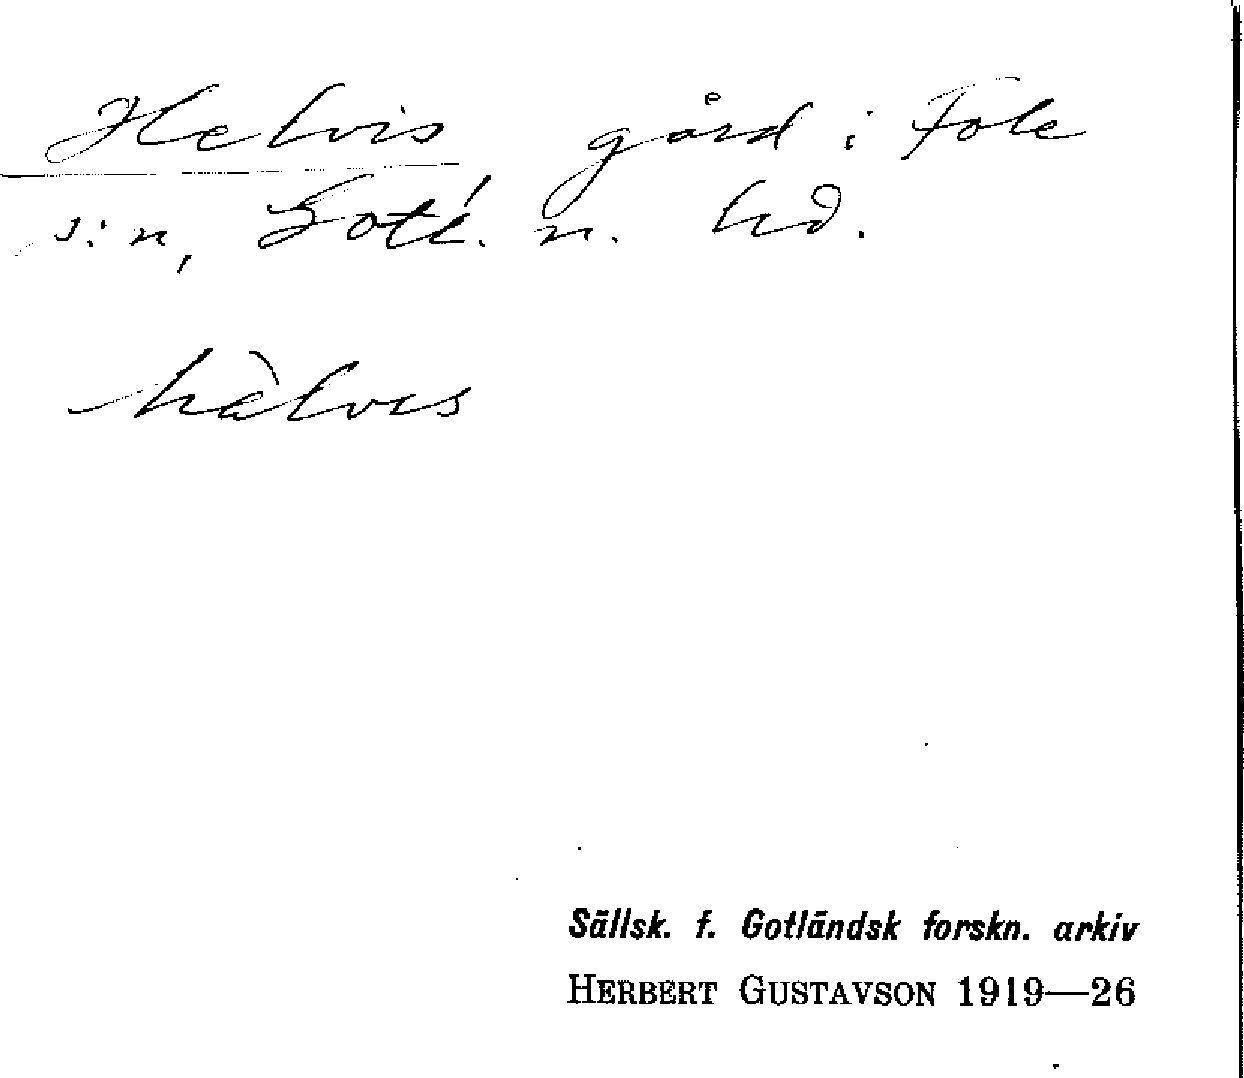 Helvis gård i Fole
s:n, Gotl. n. hd.
hàlvis
Sällsk. f. Gotländsk forskn. arkiv
HERBERT GUSTAVSON 1919—26